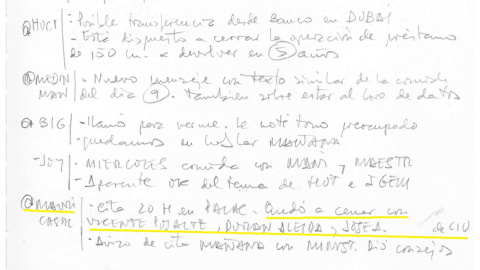 HOCT - Posible transferencia desde Banco en DUBAI
- Está dispuesto a cerrar la operación de préstamo
de 150 m. a devolver en 5 años
- Nuevo mensaje con texto similar de la comida
MAN del día 9. También sobre estar al loro de datos
BIG - Llamó para verme. Le noté tono preocupado
- quedamos en hablar MAÑANA
- JOY - MIERCOLES comida con MAN y MAESTR
- Aparente OK del tema de HOT e
- Cita 20 H en PALAC. Quedó a cenar con
VICENTE PUJALTE, DURAN LLEIDA y JOSEA. de CIU
- Aviso de cita MAÑANA con MINIST. Dió consejos